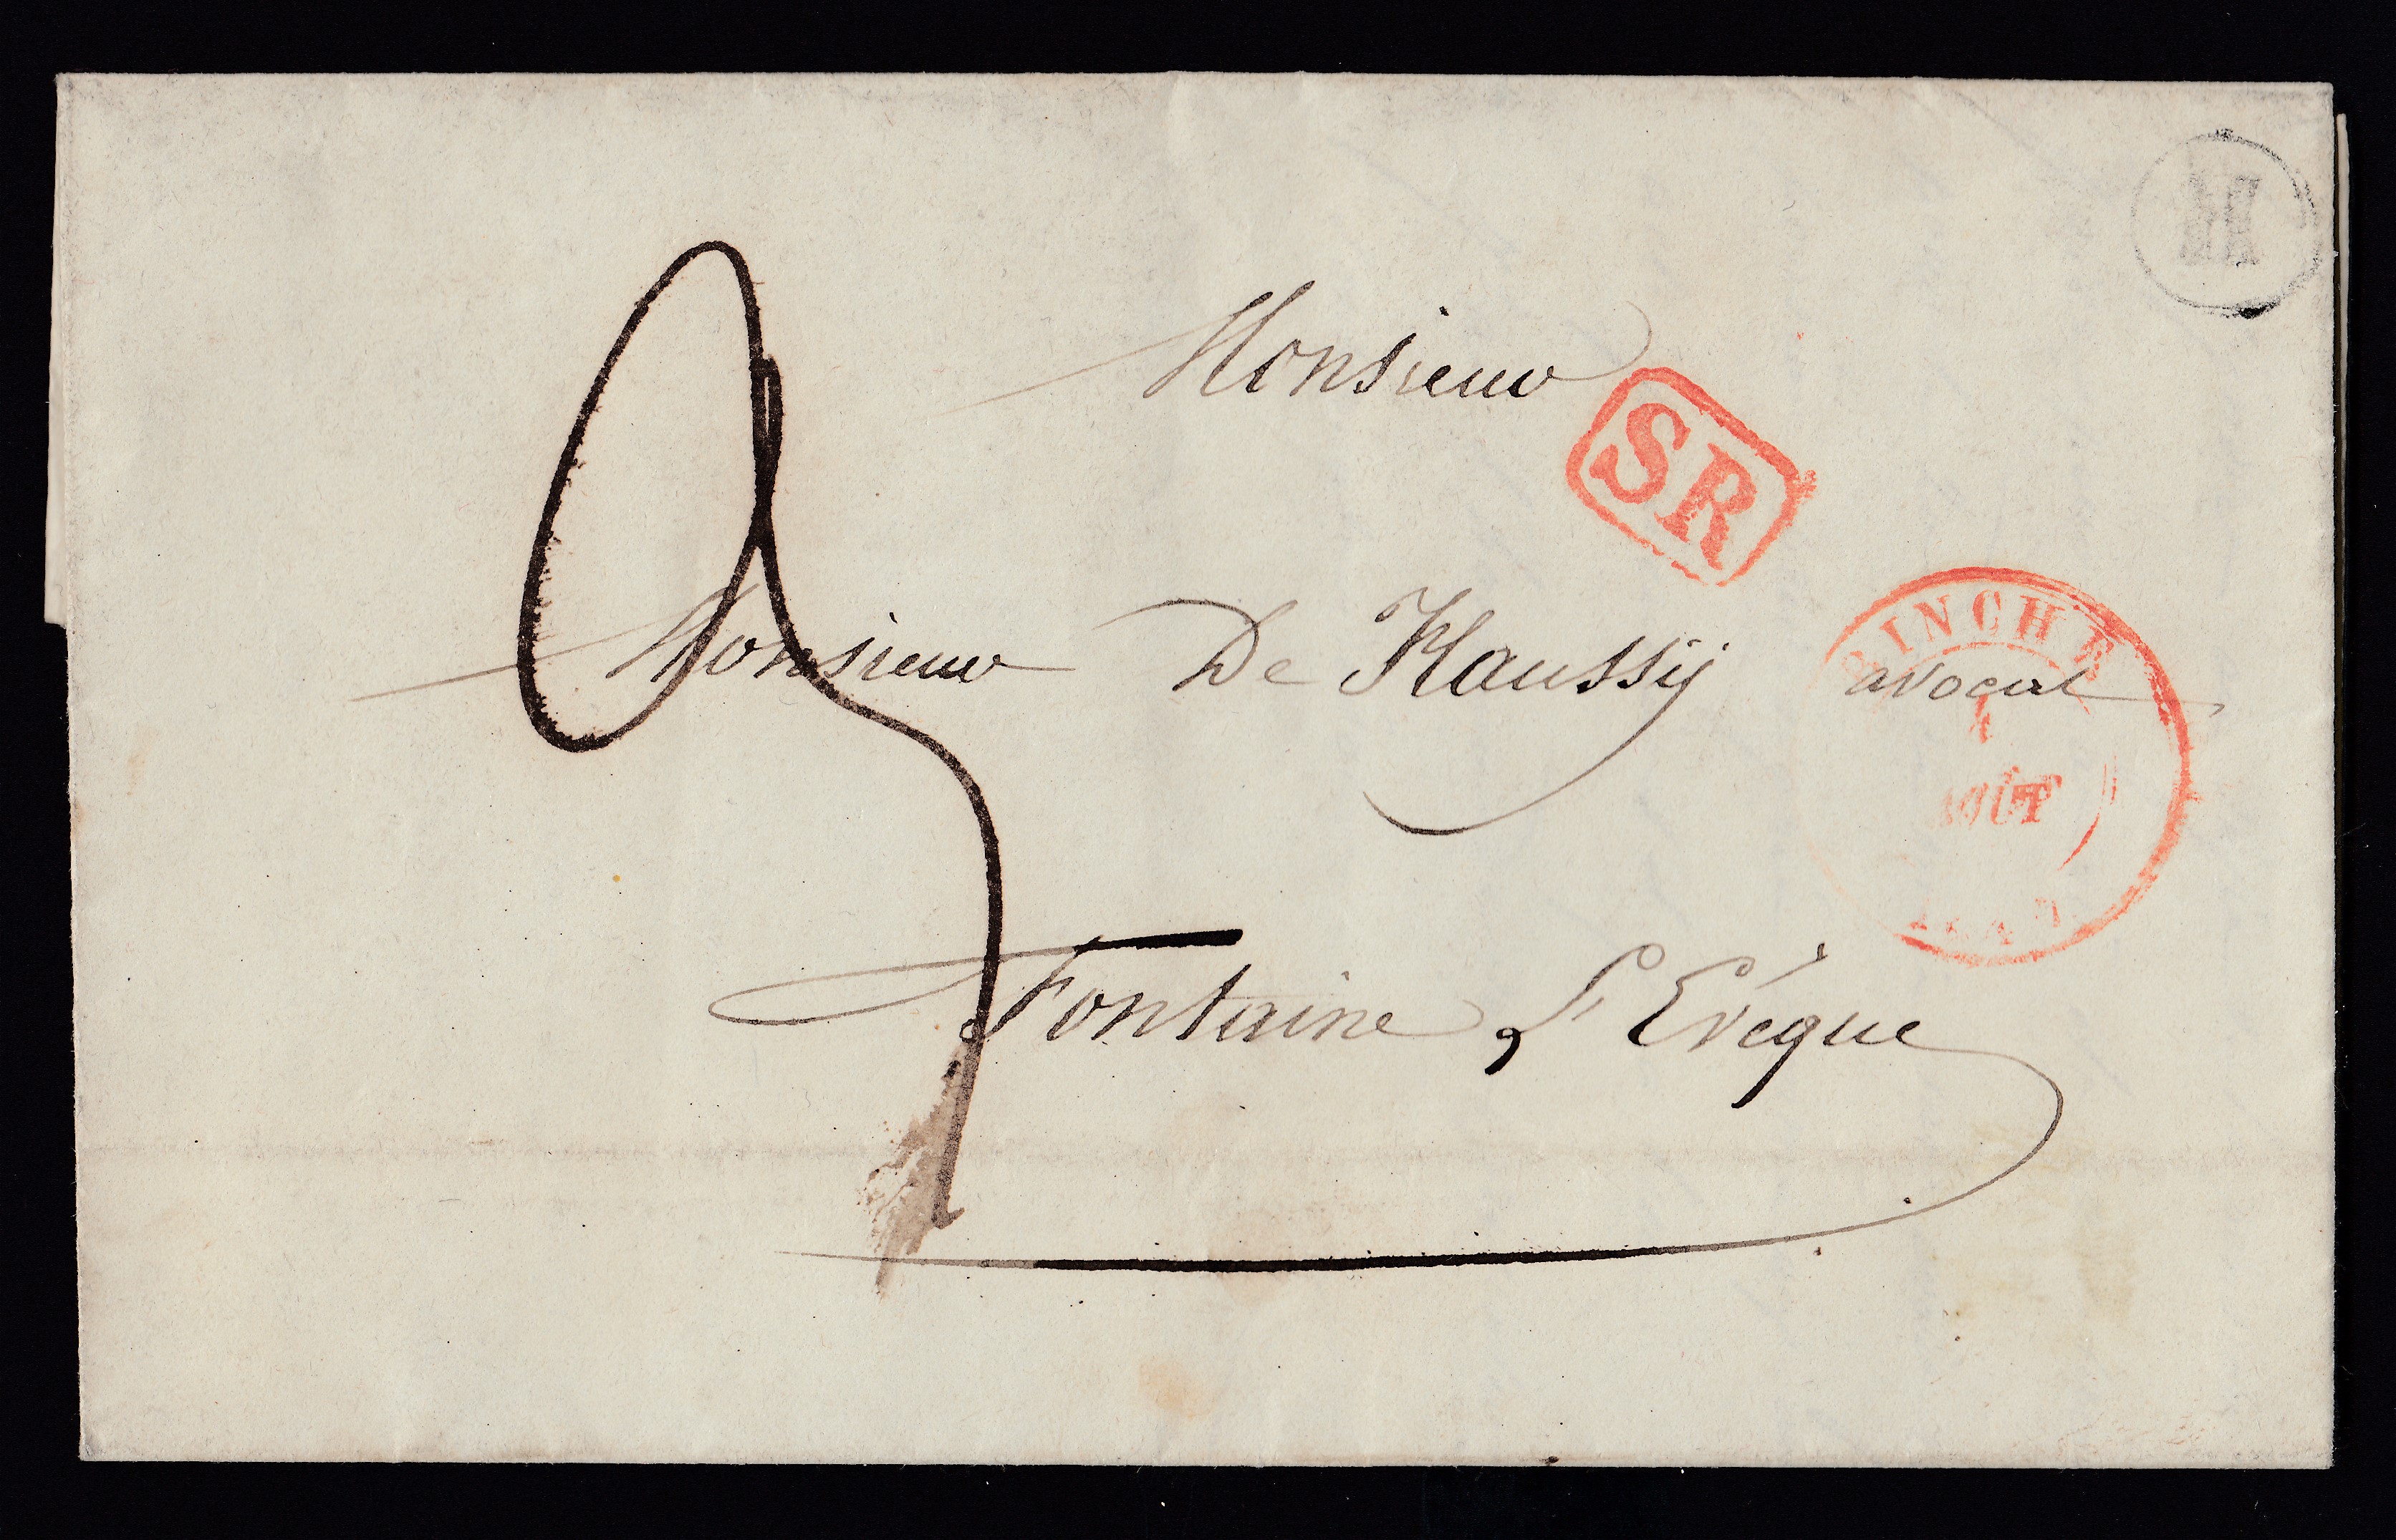 H
Monsieur
SR
Monsieur De Haussy avocat
BINCHE
AOUT
Fontaine L'Evêque